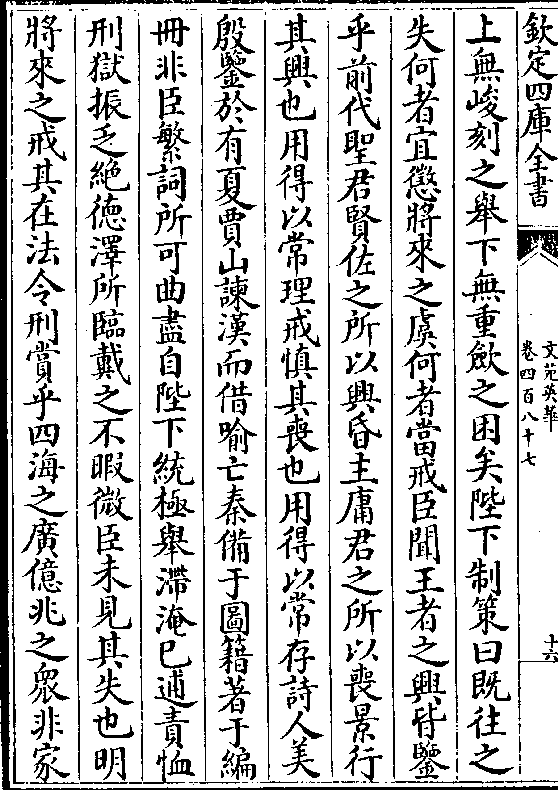 欽定四庫全書
文苑英華
卷四百八十七
十六
上無峻刻之舉下無重斂之困矣陛下制策曰既往之
失何者宜懲將來之虞何者當戒臣聞王者之興皆鑒
乎前代聖君賢佐之所以興昏主庸君之所以喪景行
其興也用得以常理戒慎其喪也用得以常存詩人美
殷鑒於有夏賈山諫漢而借喻亡秦備于圖籍著于編
冊非臣繁詞所可曲盡自陛下統極舉滯淹已逋責恤
刑獄振乏絶德澤所臨戴之不暇微臣未見其失也明
將來之戒其在法令刑賞乎四海之廣億兆之衆非家